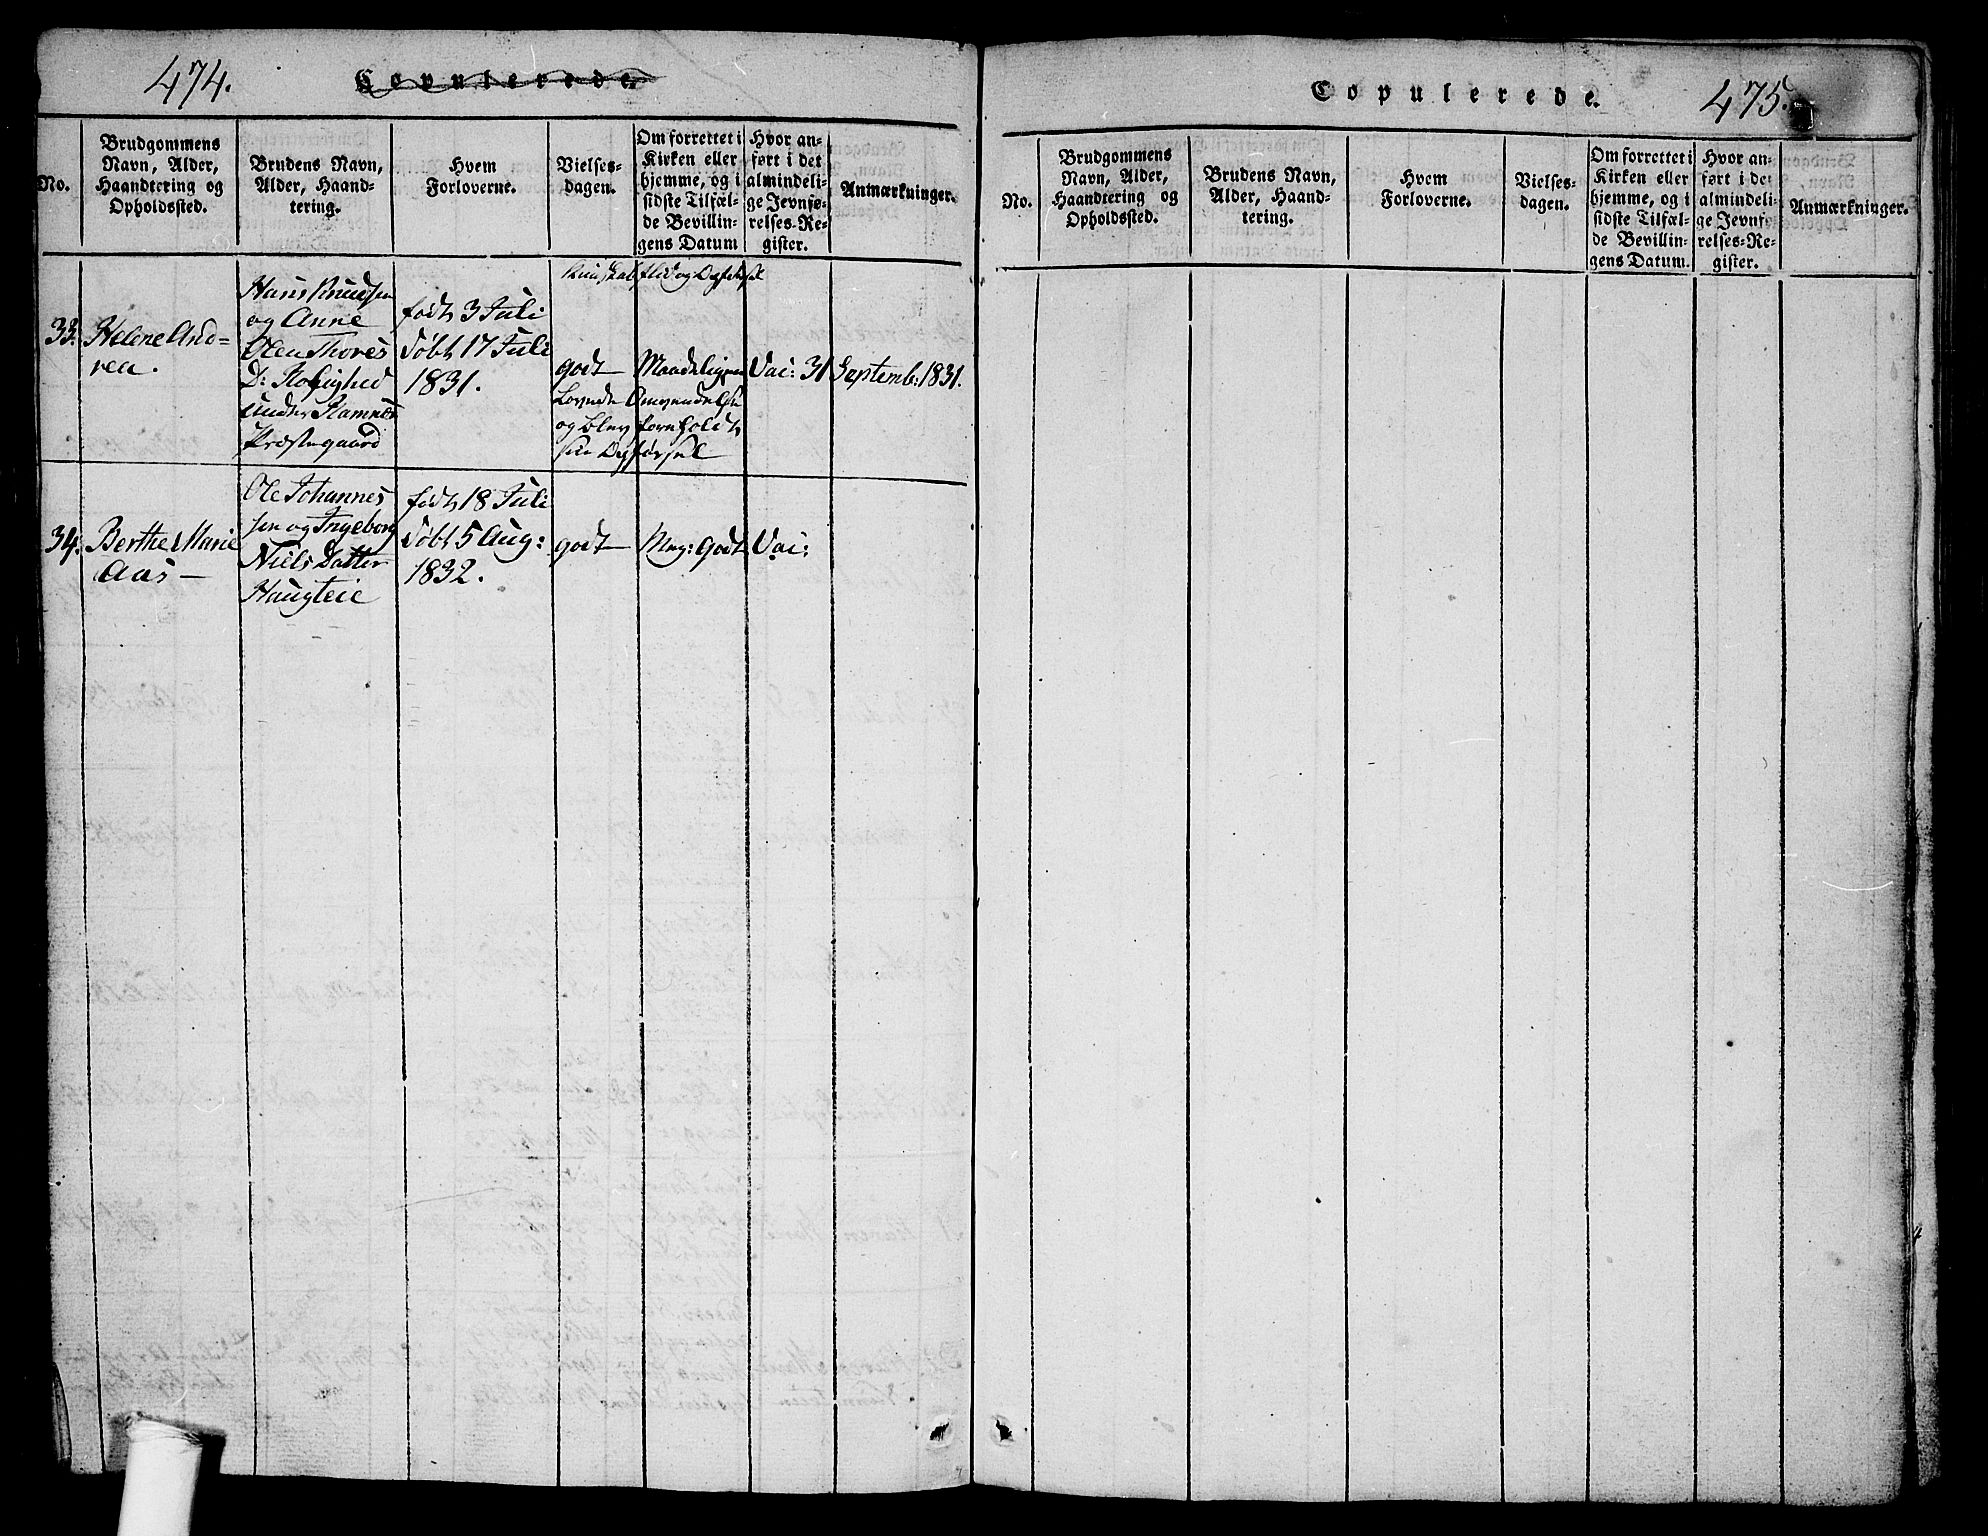 474.
Copulerede.
No.
Brudgommens
Navn, Alder,
Haandtering og
Opholdssted.
Brudens Navn,
Alder, Haand-
tering.
Hvem
Forloverne.
Vielses-
dagen.
Om forrettet i
Kirken eller
hjemme, og i
sidste Tilfæl-
de Bevillin-
gens Datum
Hvor an-
ført i det
almindeli-
ge Jevnfø-
relses-Re-
gister.
Anmærkninger.
33.
Helene And-
rea.
Hans Knudsen
og Anne
Olea Thores
D:
under Ramnes
Præstegaard
født 3 Juli
døbt 17 Juli
1831.
Kundskab flid og Opførsel
godt Maadelig Vac: 31 Septemb: 1831.
Lovede Omvendelse
og blev foreholdt
sin Opførsel
34.
Berthe Marie
Aas —
Ole Johannes
sen og Ingeborg
Niels Datter
Haugteie
født 18 Juli
døbt 5 Aug:
1832.
godt Meg: Godt Vac:
Copulerede.
475.
No.
Brudgommens
Navn, Alder,
Haandtering og
Opholdssted.
Brudens Navn,
Alder, Haand-
tering.
Hvem
Forloverne.
Vielses-
dagen.
Om forrettet i
Kirken eller
hjemme, og i
sidste Tilfæl-
de Bevillin-
gens Datum.
Hvor an-
ført i det
almindeli-
ge Jevnfø-
relses-Re-
gister.
Anmærkninger.